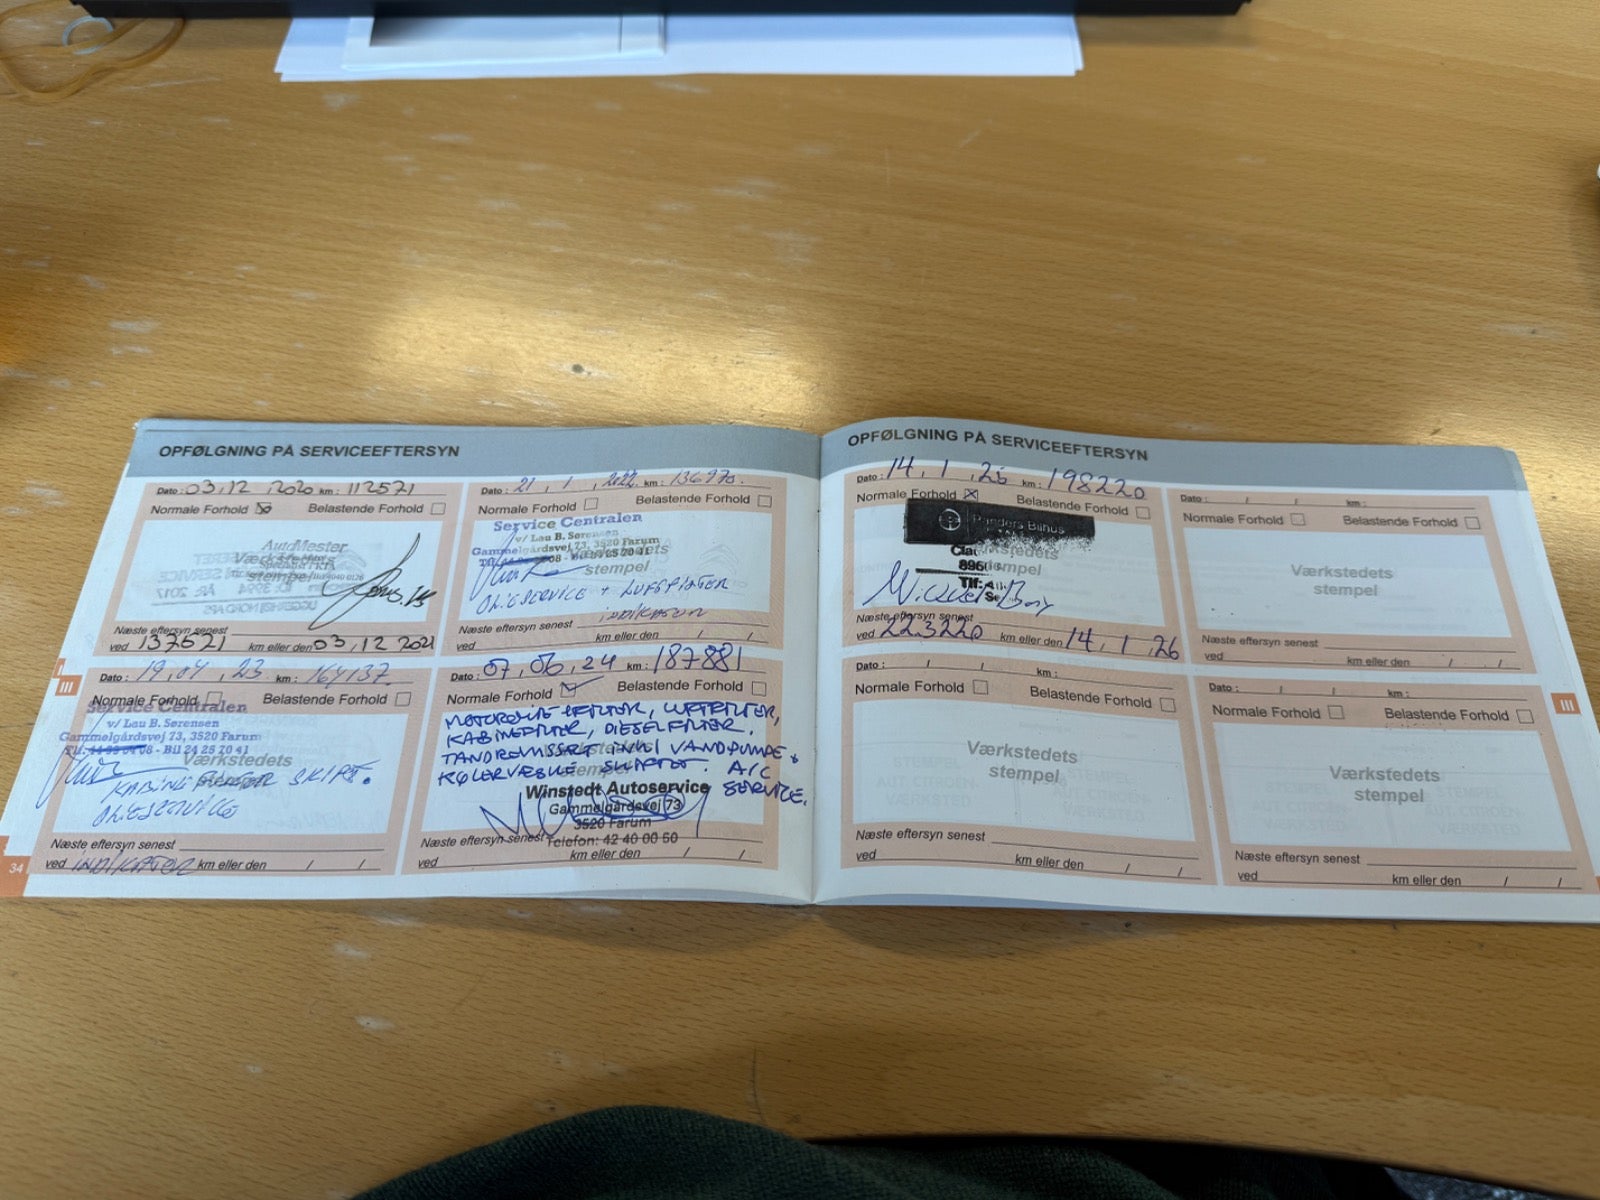 OPFØLGNING PÅ SERVICEEFTERSYN
Dato: 03, 12, 2020 km: 112521
Normale Forhold Belastende Forhold
AutoMester
Værkstedets
stempel
Næste eftersyn senest
ved 137521 km eller den 03, 12 2021
Dato: 21, 1, 2022 km: 136970.
Normale Forhold Belastende Forhold
Service Centralen
v/ Lau B. Sørensen
Gammelgårdsvej 73, 3520 Farum
08 - Bil 24 25 20 41
stempel
OLIESERVICE + LUFTFILTER
Næste eftersyn senest INDIKATOR
km eller den / /
Dato: 19, 04, 23 km: 164137.
Normale Forhold Belastende Forhold
Service Centralen
v/ Lau B. Sørensen
Gammelgårdsvej 73, 3520 Farum
08 - Bil 24 25 20 41
Værkstedets
KABINEFILTER SKIFT.
OLIESERVICE
Næste eftersyn senest
ved INDIKATOR km eller den / /
Dato: 07, 06, 24 km: 187881
Normale Forhold Belastende Forhold
MOTOROLIE +FILTER, LUFTFILTER,
KABINEFILTER, DIESELFILTER.
TANDREMSSÆT INKL VANDPUMPE &
KØLERVÆSKE SKIFTET. A/C
SERVICE.
Winstedt Autoservice
Gammelgårdsvej 73
3520 Farum
Næste eftersyn senest Telefon: 42 40 00 50
ved km eller den / /
34
III
OPFØLGNING PÅ SERVICEEFTERSYN
Dato: 14, 1, 25 km: 198220
Normale Forhold Belastende Forhold
Bilhus
Værkstedets
stempel
Tlf:
Næste eftersyn senest
ved 223220 km eller den 14, 1, 26
Dato: / / km:
Normale Forhold Belastende Forhold
Værkstedets
stempel
Næste eftersyn senest
ved km eller den / /
Dato: / / km:
Normale Forhold Belastende Forhold
Værkstedets
stempel
Næste eftersyn senest
ved km eller den / /
Dato: / / km:
Normale Forhold Belastende Forhold
Værkstedets
stempel
Næste eftersyn senest
ved km eller den / /
III